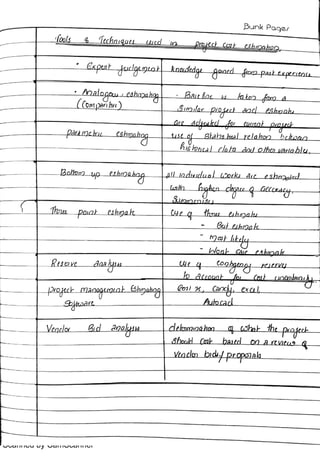 Bunk Pages
Tools & Techniques used in project cost estimation.
• Expert judgement knowledge gained from past experience
• Analogous estimating - Baseline is taken from a
(Comparitive) Similar project and estimate
are adjusted for current project
parametric estimating use of Statistical relation between
historical data and other variables.
Bottom up estimating all individual works are estimated
with higher degree of accuracy.
Three point estimate Use of three estimate
- Best estimate
- most likely
- Worst Case estimate
Reserve analysis Use of contingency reserves
to account for cost uncertainty
project management Estimating Candy, excel
Software Autocad
Vendor Bid analysis determination of what the project
should cost based on a review of
vendor bids/proposals
Scanned by CamScanner